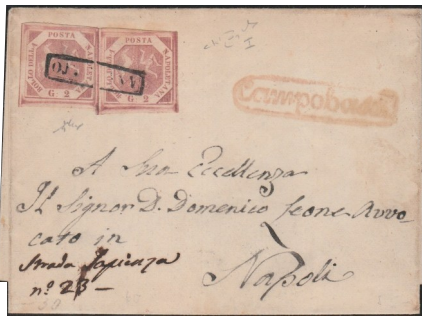 POSTA
POSTA
BOLLO DELLA
NAPOLETANA
BOLLO DELLA
NAPOLETANA
G 2
G 2
Campobasso
A Sua Eccellenza
Il Signor D. Domenico Leone Avvo
cato in
Strada Sapienza
nº 23 —
Napoli